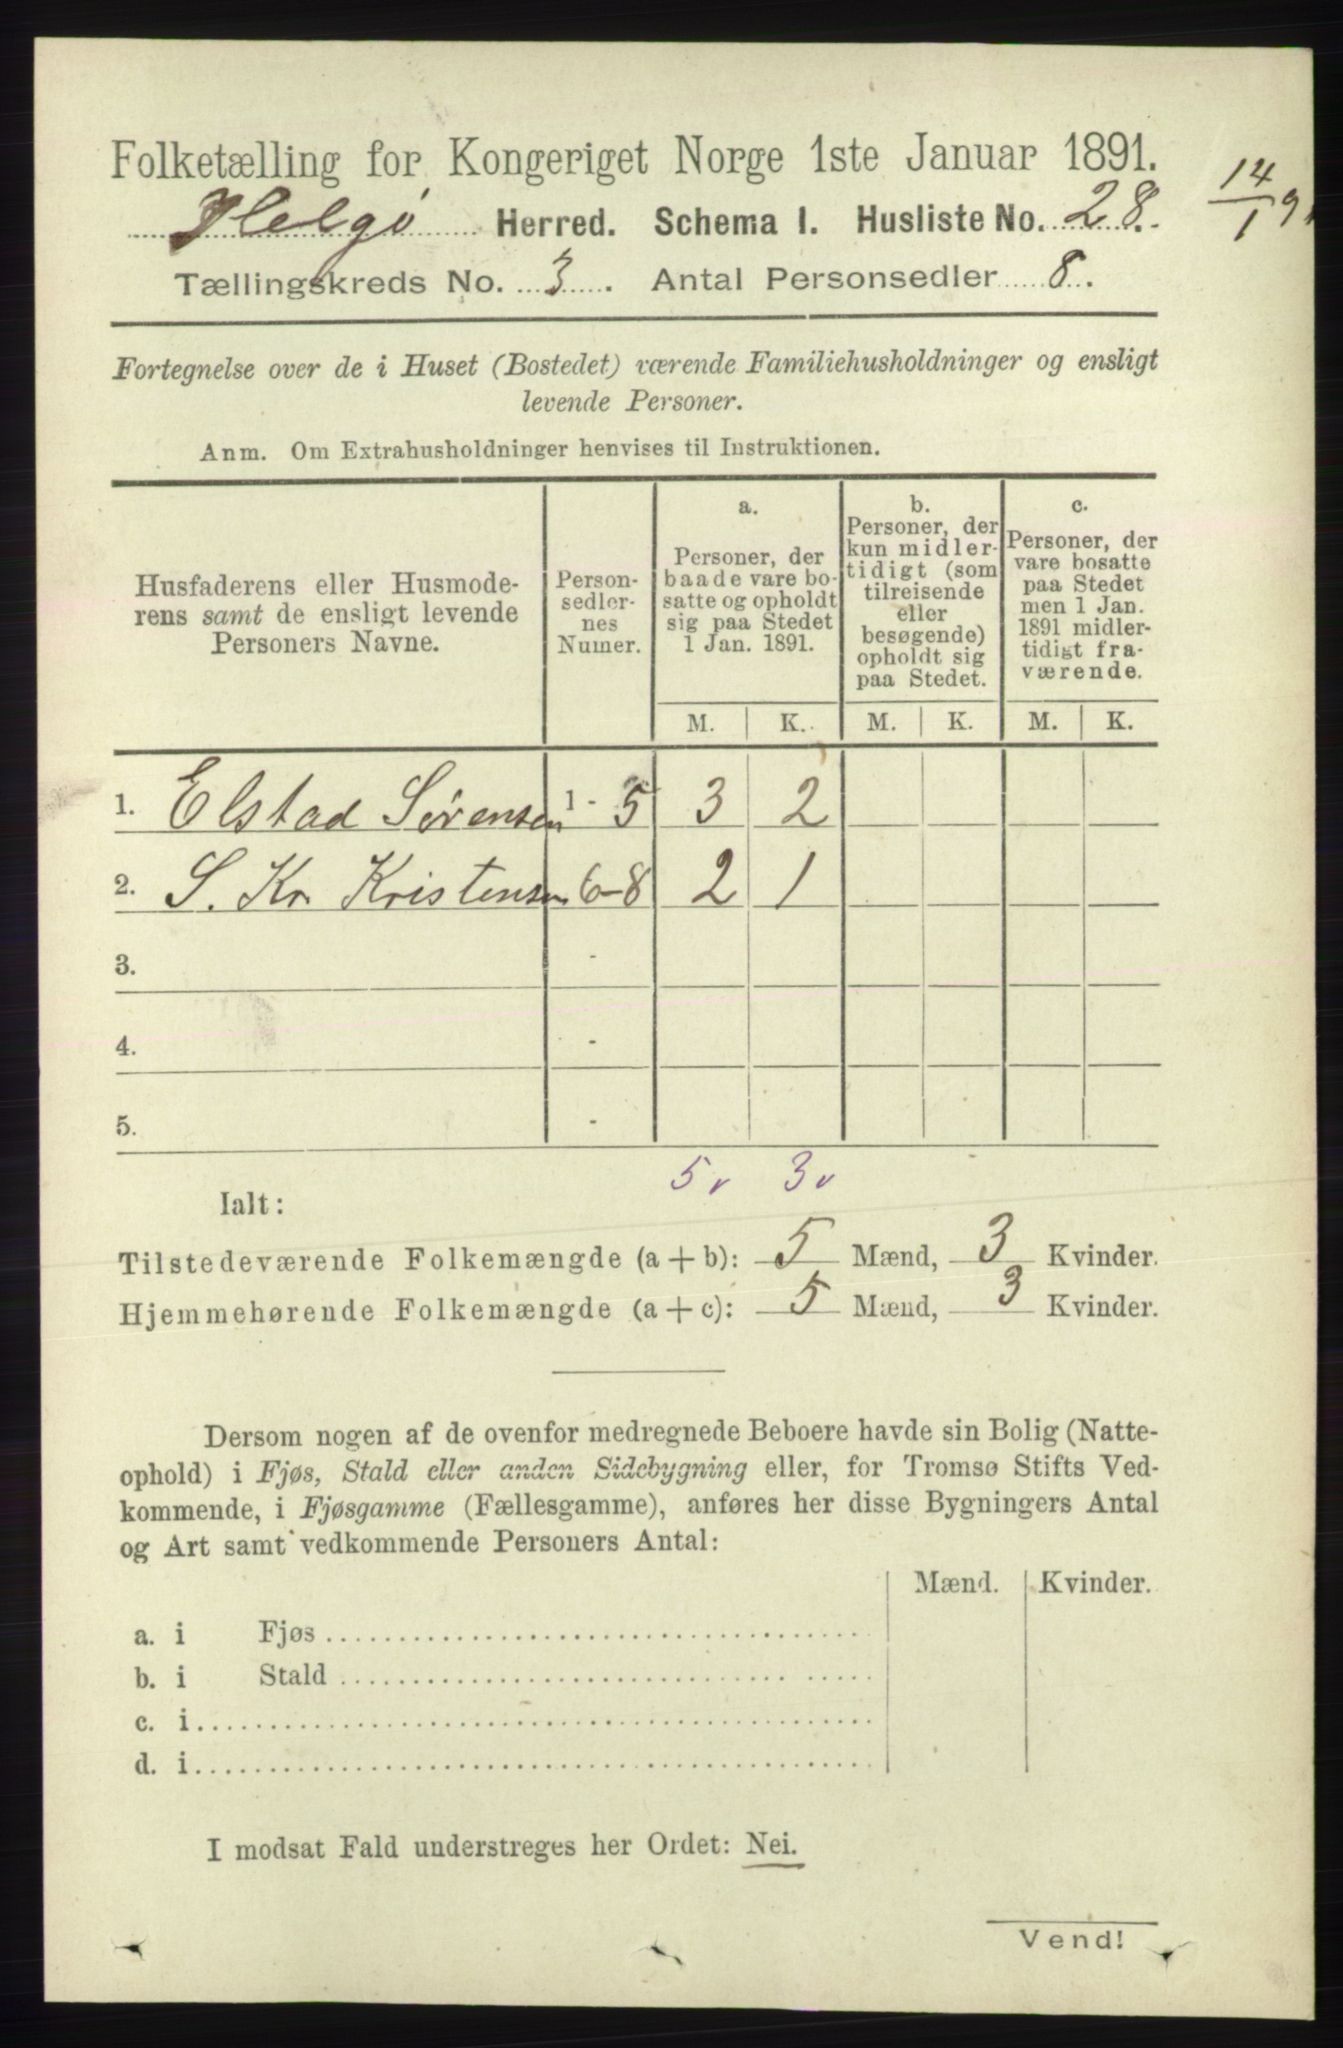 Folketælling for Kongeriget Norge 1ste Januar 1891.
14/1 91
Helgø Herred. Schema 1. Husliste No. 28.
Tællingskreds No. 3. Antal Personsedler 8.
Fortegnelse over de i Huset (Bostedet) værende Familiehusholdninger og ensligt
levende Personer.
Anm. Om Extrahusholdninger henvises til Instruktionen.
Husfaderens eller Husmode-
rens samt de ensligt levende
Personers Navne.
Person-
sedler-
nes
Numer.
a.
Personer, der
baade vare bo-
satte og opholdt
sig paa Stedet
1 Jan. 1891.
b.
Personer, der
kun midler-
tidigt (som
tilreisende
eller
besøgende)
opholdt sig
paa Stedet.
c.
Personer, der
vare bosatte
paa Stedet
men 1 Jan.
1891 midler-
tidigt fra-
værende.
M. K. M. K. M. K.
1. Elstad Sørensen 1 - 5 3 2
2. S. Kr. Kristensen 6-8 2 1
3. -
4. -
5. -
5 v 3 v
Ialt:
Tilstedeværende Folkemængde (a + b): 5 Mænd, 3 Kvinder.
Hjemmehørende Folkemængde (a + c): 5 Mænd, 3 Kvinder.
Dersom nogen af de ovenfor medregnede Beboere havde sin Bolig (Natte-
ophold) i Fjøs, Stald eller anden Sidebygning eller, for Tromsø Stifts Ved-
kommende, i Fjøsgamme (Fællesgamme), anføres her disse Bygningers Antal
og Art samt vedkommende Personers Antal:
Mænd. Kvinder.
a. i Fjøs
b. i Stald
c. i
d. i
I modsat Fald understreges her Ordet: Nei.
Vend!